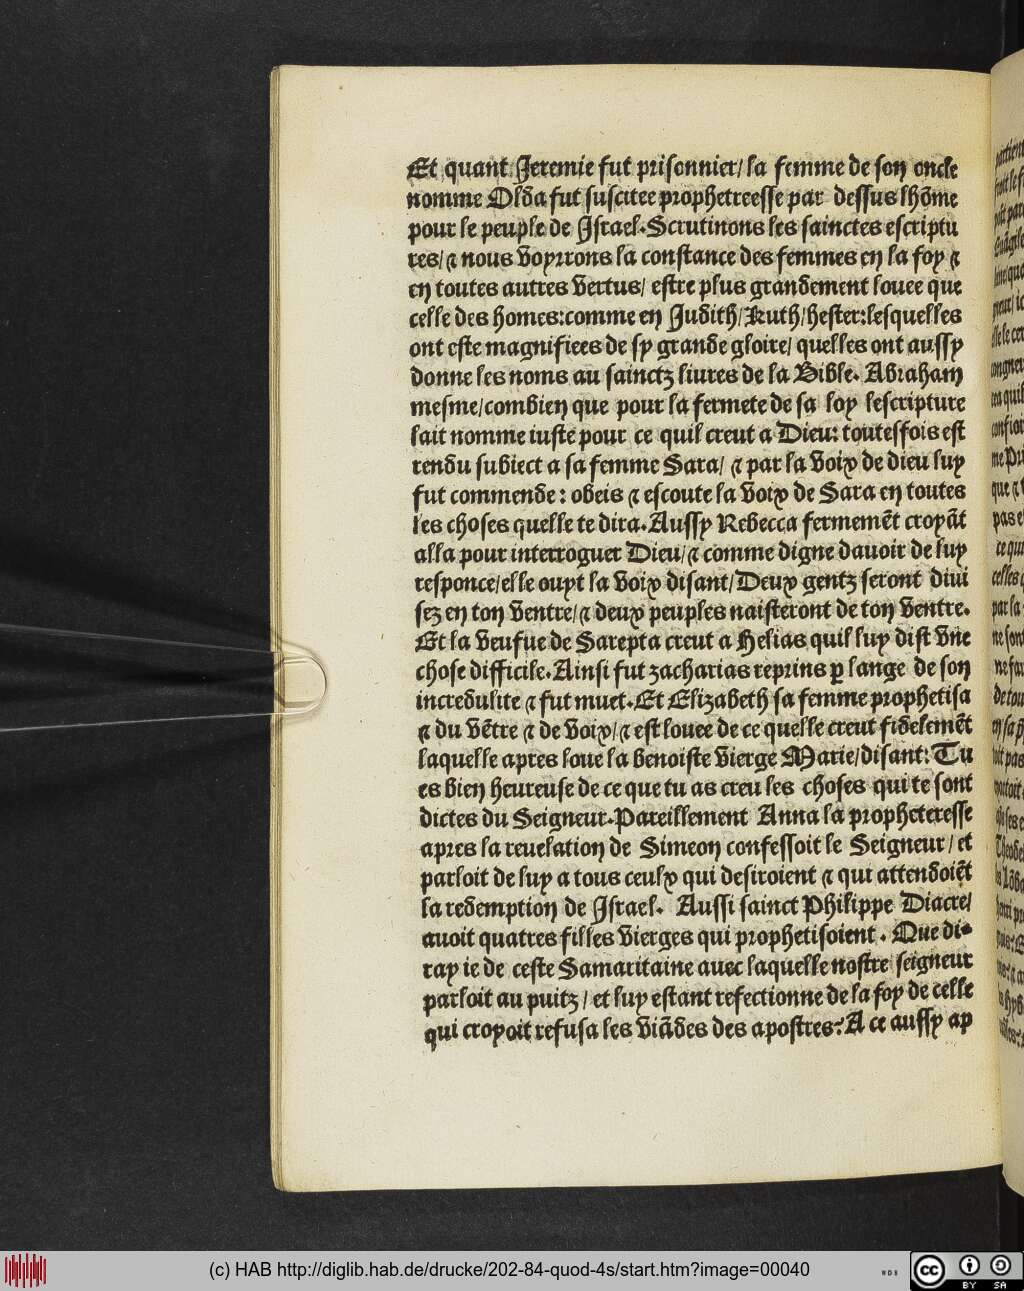 Et quant Jeremie fut prisonnier/ la femme de son oncle
nomme Olda fut suscitee prophetreesse par dessus lhõme
pour le peuple de Israel. Scrutinons les sainctes escriptu
res/ ⁊ nous voyrrons la constance des femmes en la foy ⁊
en toutes autres vertus/ estre plus grandement louee que
celle des homes: comme en Judith/ Ruth/ hester: lesquelles
ont este magnifiees de sy grande gloire/ quelles ont aussy
donne les noms au sainctz liures de la Bible. Abraham
mesme/ combien que pour la fermete de sa loy lescripture
lait nomme iuste pour ce quil creut a Dieu: toutesfois est
rendu subiect a sa femme Sara/ ⁊ par la voix de dieu luy
fut commende: obeis ⁊ escoute la voix de Sara en toutes
les choses quelle te dira. Aussy Rebecca fermemẽt croyãt
alla pour interroguer Dieu/ ⁊ comme digne dauoir de luy
responce/ elle ouyt la voix disant/ Deux gentz seront diui
sez en ton ventre/ ⁊ deux peuples naisteront de ton ventre.
Et la veufue de Sarepta creut a Helias quil luy dist vne
chose difficile. Ainsi fut zacharias reprins ꝑ lange de son
incredulite ⁊ fut muet. Et Elizabeth sa femme prophetisa
⁊ du vẽtre ⁊ de voix/ ⁊ est louee de ce quelle creut fidelemẽt
laquelle apres loue la benoiste vierge Marie/ disant: Tu
es bien heureuse de ce que tu as creu les choses qui te sont
dictes du Seigneur. Pareillement Anna la propheteresse
apres la reuelation de Simeon confessoit le Seigneur/ et
parloit de luy a tous ceulx qui desiroient ⁊ qui attendoiẽt
la redemption de Israel. Aussi sainct Philippe Diacre/
auoit quatres filles vierges qui prophetisoient. Que di-
ray ie de ceste Samaritaine auec laquelle nostre seigneur
parloit au puitz/ et luy estant refectionne de la foy de celle
qui croyoit refusa les viãdes des apostres? A ce aussy ap
(c) HAB http://diglib.hab.de/drucke/202-84-quod-4s/start.htm?image=00040
cc BY SA